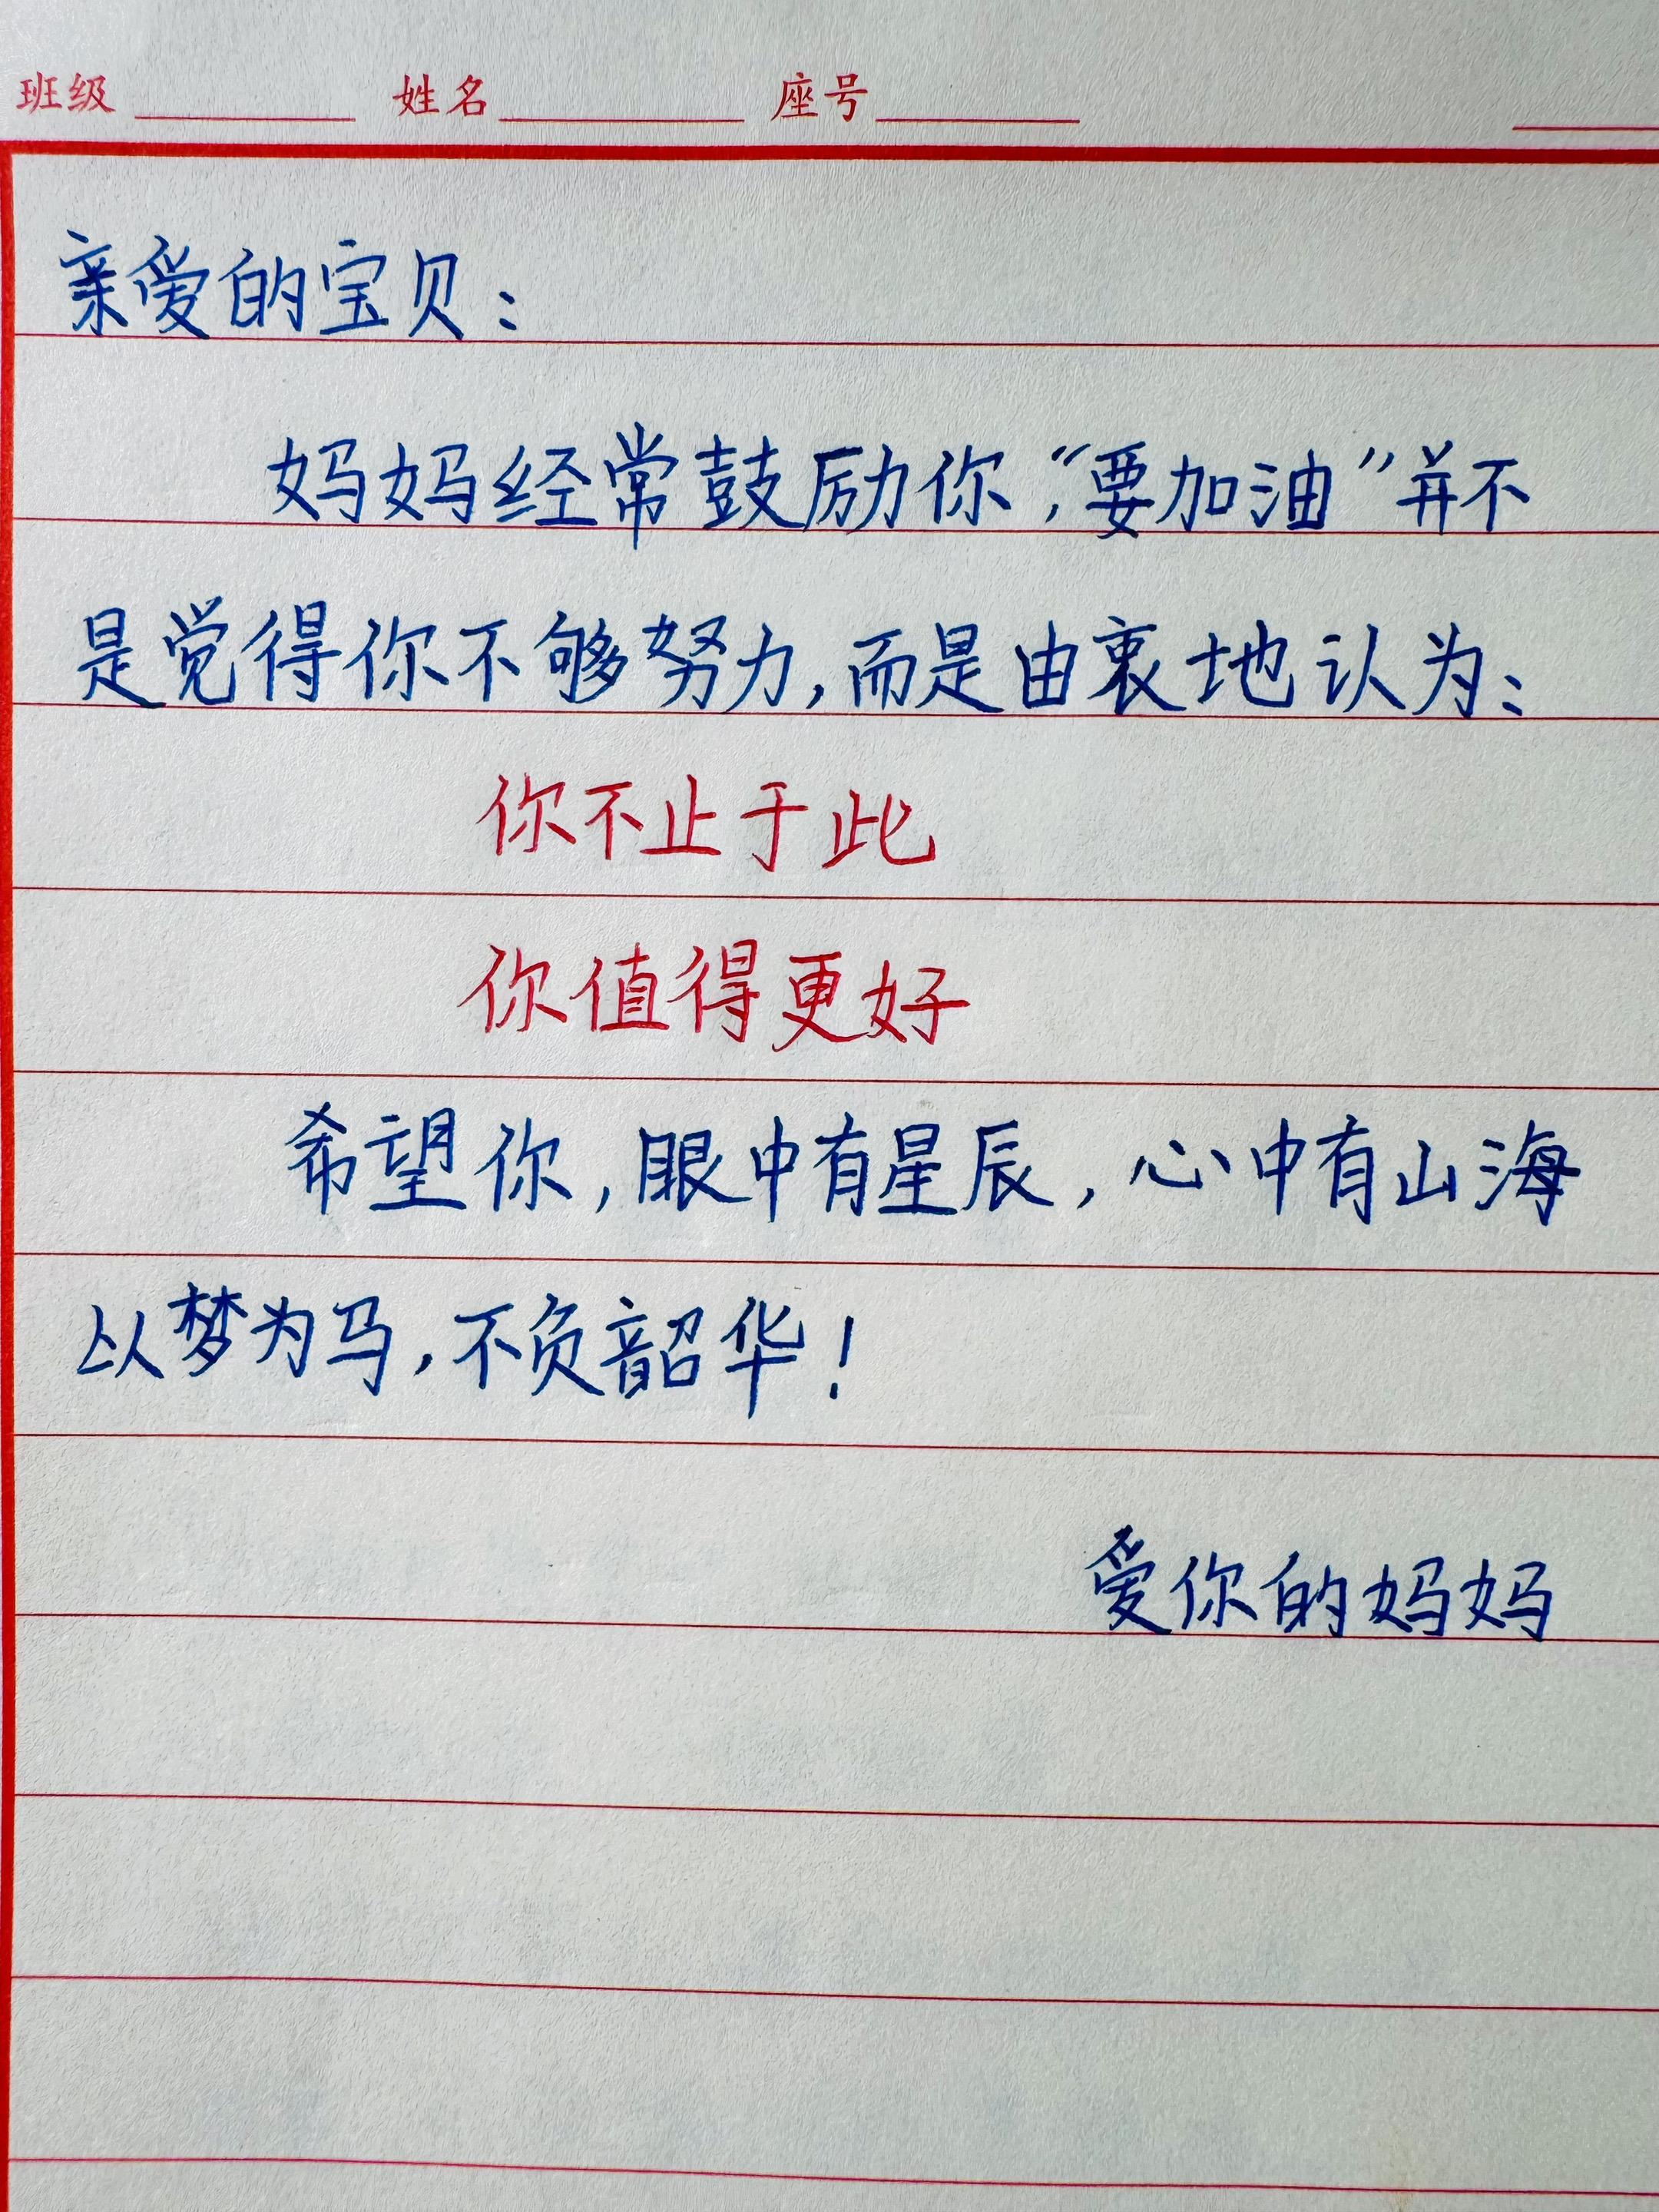 班级 姓名 座号
亲爱的宝贝：
妈妈经常鼓励你，“要加油”并不
是觉得你不够努力，而是由衷地认为：
你不止于此
你值得更好
希望你，眼中有星辰，心中有山海
以梦为马，不负韶华！
爱你的妈妈